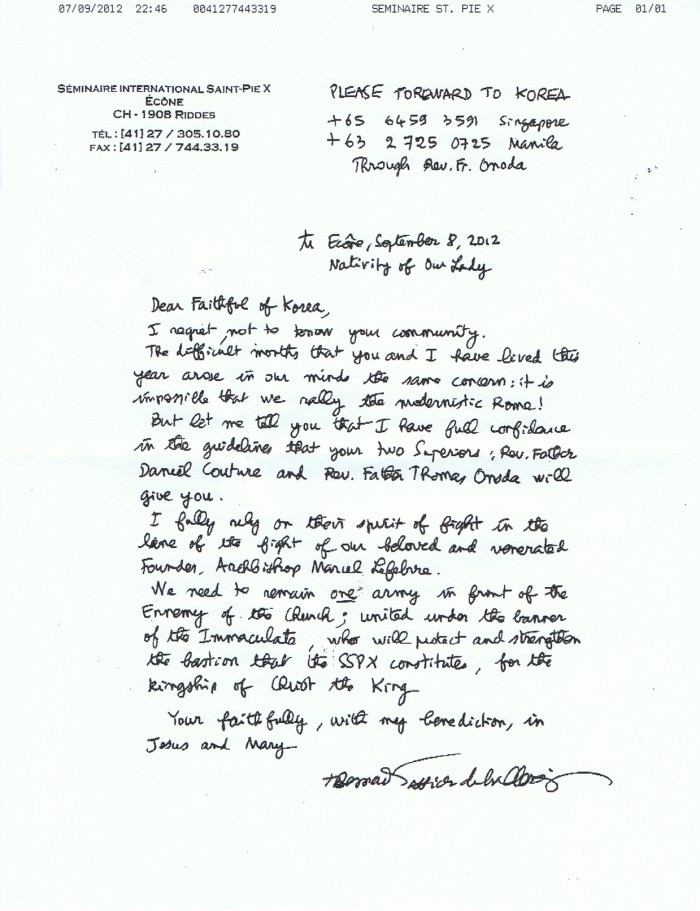 07/09/2012 22:46 0041277443319 SEMINAIRE ST. PIE X PAGE 01/01
SÉMINAIRE INTERNATIONAL SAINT-PIE X
ÉCÔNE
CH - 1908 RIDDES
TÉL : [41] 27 / 305.10.80
FAX : [41] 27 / 744.33.19
PLEASE FOREWARD TO KOREA
+65 6459 3591 Singapore
+63 2 725 0725 Manila
Through Rev. Fr. Onoda
Ecône, September 8, 2012
Nativity of Our Lady
Dear Faithful of Korea,
I regret not to know your community.
The difficult months that you and I have lived this
year arose in our minds the same concern : it is
impossible that we rally the modernistic Rome !
But let me tell you that I have full confidence
in the guidelines that your two Superiors, Rev. Father
Daniel Couture and Rev. Father Thomas Onoda will
give you.
I fully rely on their spirit of fight in the
line of the fight of our beloved and venerated
Founder, Archbishop Marcel Lefebvre.
We need to remain one army in front of the
Ennemy of the Church ; united under the banner
of the Immaculate, who will protect and strengthen
the bastion that the SSPX constitutes, for the
kingship of Christ the King
Your faithfully, with my benediction, in
Jesus and Mary
+ Bernard Tissier de Mallerais